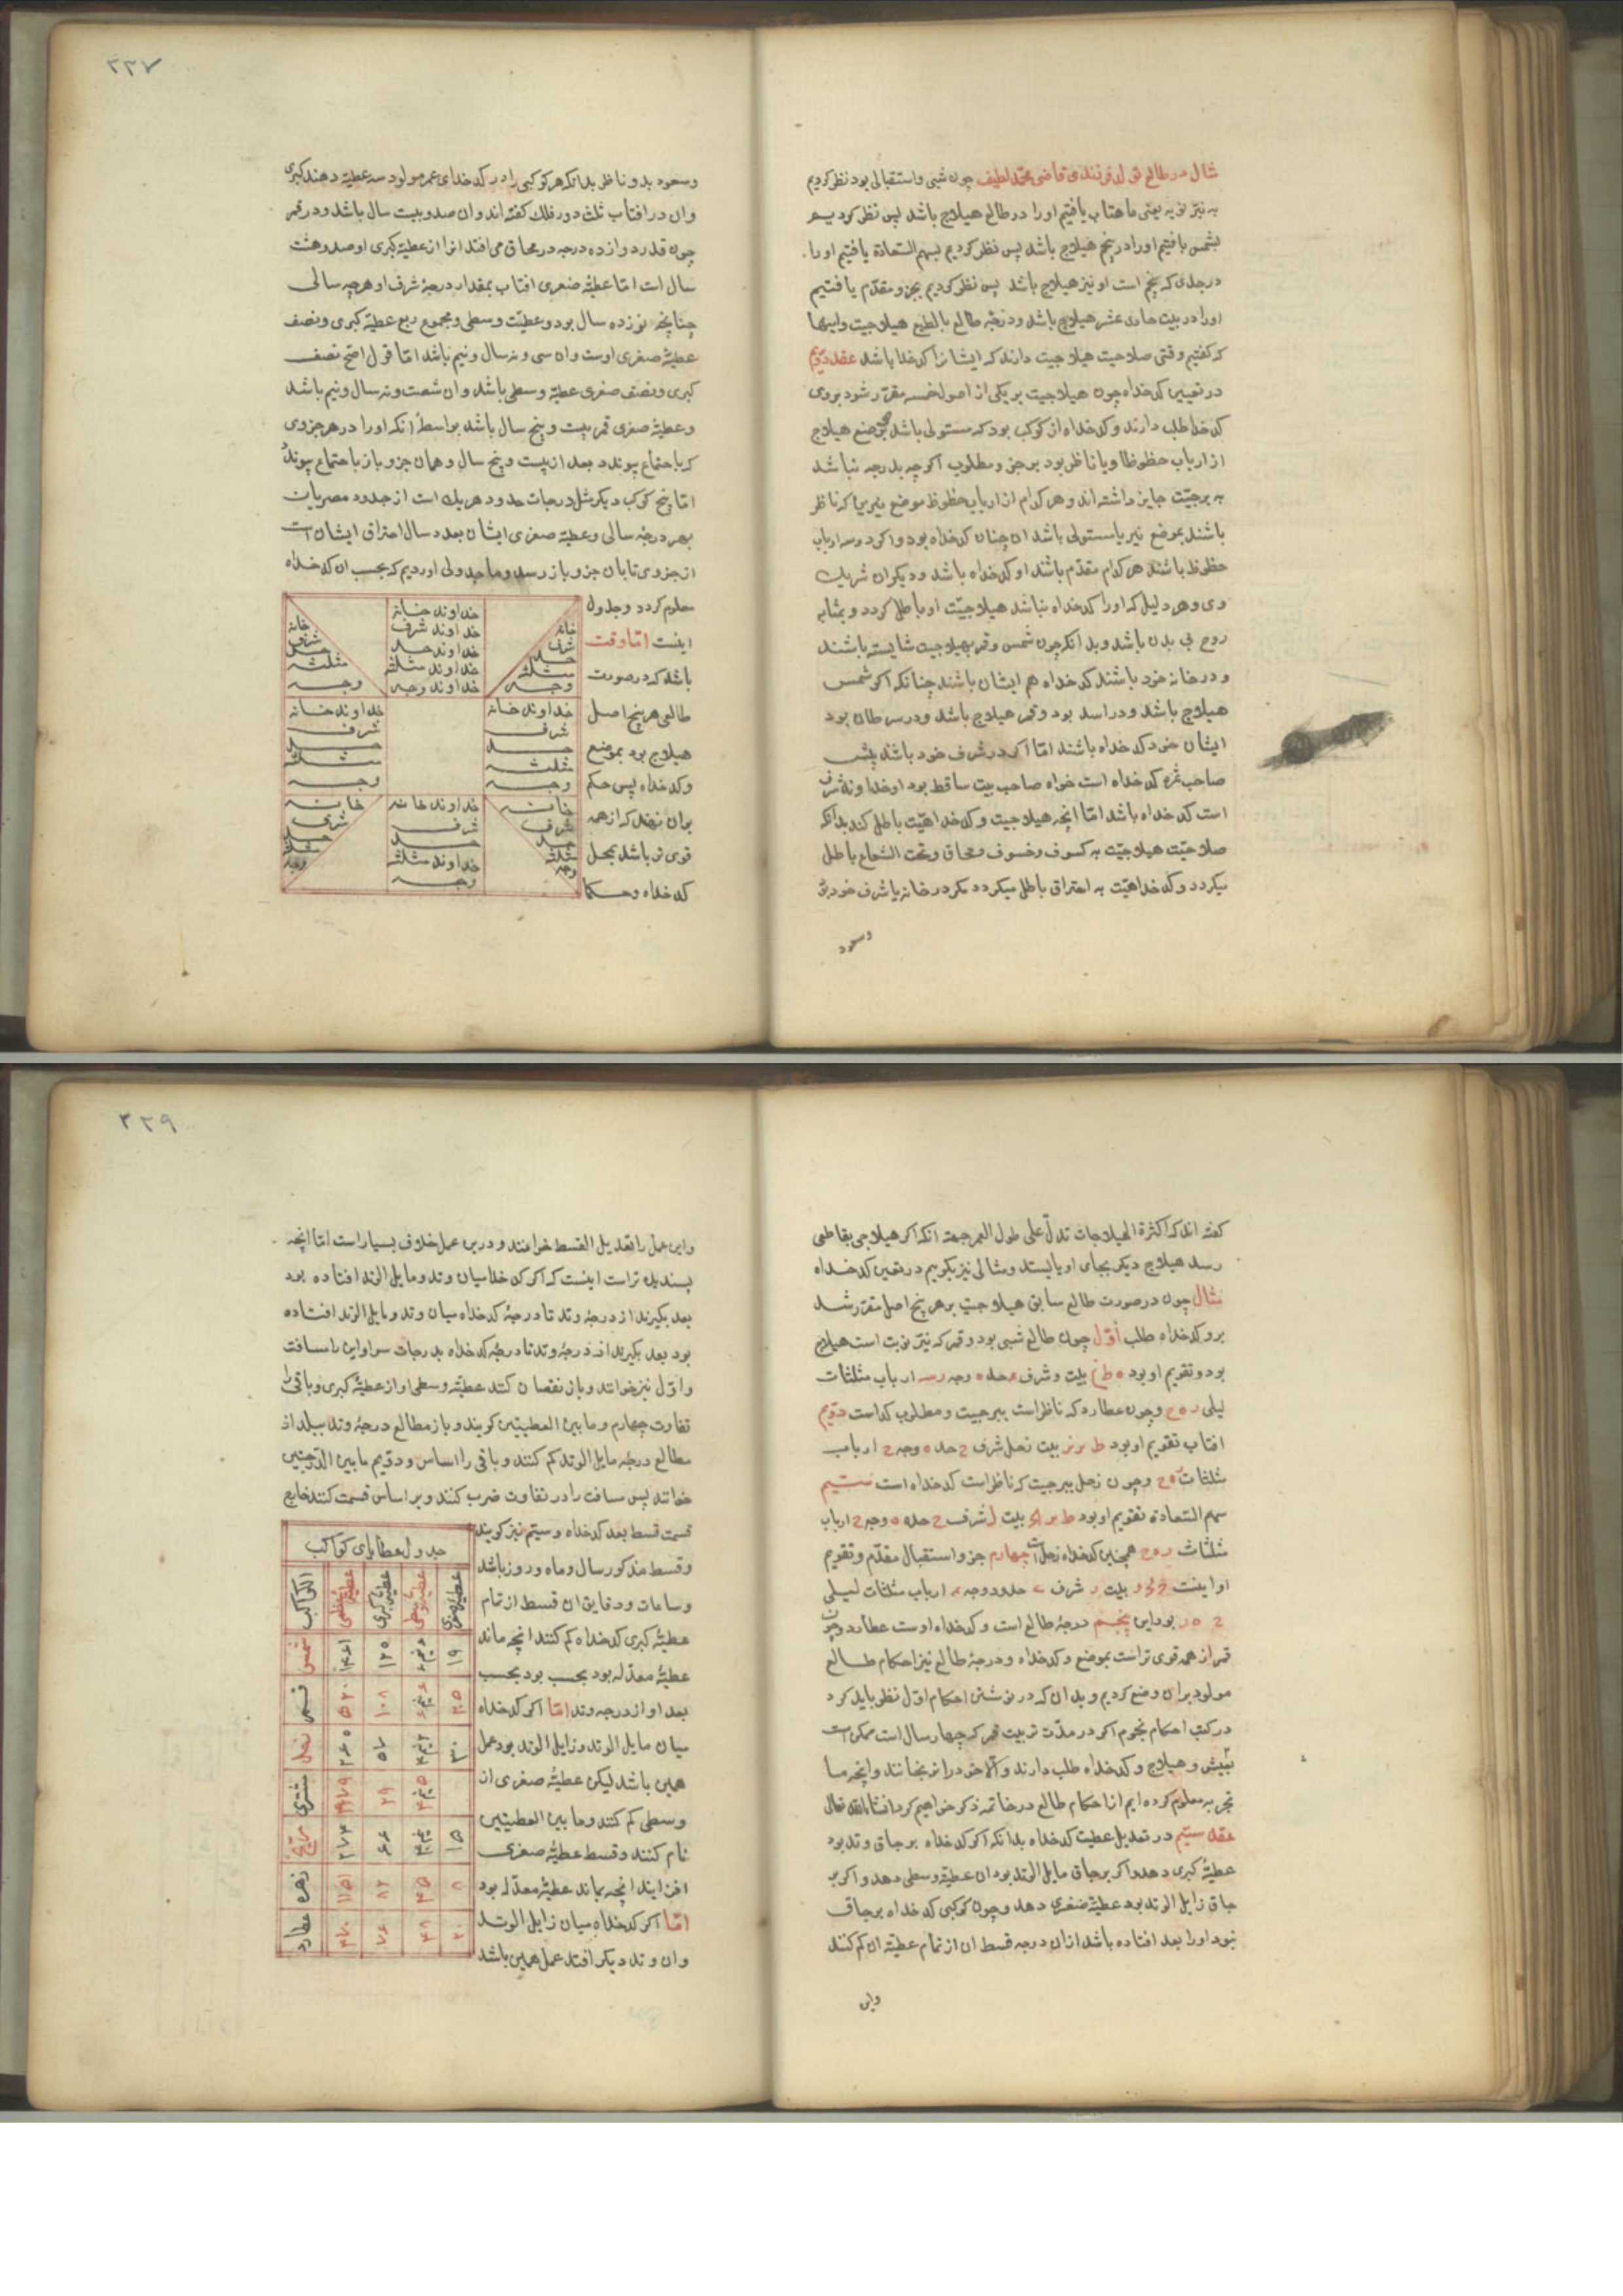 مثال در طالع تولد فرزندی قاضی محمد لطیف چون شبی و استقبالی بود نظر کردیم
به نیّر نوبه یعنی ماهتاب یافتیم اورا در طالع هیلاج باشد پس نظر کردیم
بشمس یافتیم اورا در پنجم هیلاج باشد پس نظر کردیم بسهم السعادة یافتیم اورا
در جدی که پنجم است او نیز هیلاج باشد پس نظر کردیم بجزو مقدّم یافتیم
اورا در بیت حادی عشر هیلاج باشد و درجهٔ طالع بالطبع هیلاجیت و اینها
که کفتیم وقتی صلاحیت هیلاجیت دارند که ایشانرا کدخدا باشد عقد دوّیم
در تعیین کدخداه چون هیلاجیت بر یکی از اصول خمسه مقرّر شود بروی
کدخدا طلب دارند و کدخداه ان کوکب بود که مستولی باشد بر موضع هیلاج
از ارباب حظوظ او یا ناظر بود بر جزو مطلوب اکر چه بدرجه نباشد
به برجیّت جایز داشته اند و هر کدام از ارباب حظوظ موضع نیرین که ناظر
باشند بموضع نیر یا مستولی باشد ان چنان کدخداه بود و اکر دو سه ارباب
حظوظ باشند هر کدام مقدّم باشد او کدخداه باشد و دیکران شریك
وی و هر دلیل که اورا کدخداه نباشد هیلاجیّت او باطل کردد و بمثابه
روح بی بدن باشد و بدانکه چون شمس و قمر بهیلاجیت شایسته باشند
و در خانه خود باشند کدخداه هم ایشان باشند چنانکه اکر شمس
هیلاج باشد و در اسد بود و قمر هیلاج باشد و در سرطان بود
ایشان خود کدخداه باشند امّا اکر در شرف خود باشد پیش
صاحب ثمره کدخداه است خواه صاحب بیت ساقط بود او خداوند شرف
است کدخداه باشد امّا انچه هیلاجیت و کدخداهیّت باطل کند بدانکه
صلاحیّت هیلاجیّت به کسوف و خسوف و محاق و تحت الشعاع باطل
میکردد و کدخداهیّت به احتراق باطل میکردد مکر در خانه یا شرف خود بود
وسعود
۲۳۷
وسعود بدو ناظر بدانکه هر کوکبی را در کدخدای عمر مولود سه عطیّة دهند کبری
وان در افتاب ثلث دور فلك کفته اند وان صد و بیست سال باشد و در قمر
چون قدر دوازده درجه در محاق می افتد انرا از عطیّهٔ کبری او صد و هشت
سال است امّا عطیّهٔ صغری افتاب بمقدار درجهٔ شرف او هر چه سالی
چنانچه نوزده سال بود و عطیّت وسطی و مجموع ربع عطیّهٔ کبری و نصف
عطیّهٔ صغری اوست وان سی و نه سال و نیم باشد امّا قول اصحّ نصف
کبری و نصف صغری عطیّهٔ وسطی باشد وان شصت و نه سال و نیم باشد
و عطیّهٔ صغری قمر بیست و پنج سال باشد بواسطهٔ انکه اورا در هر جزوی
که با اجتماع پیوندد بعد از بیست و پنج سال و همان جزو باز با اجتماع پیوندد
امّا پنج کوکب دیکر مثل درجات حدود هر یك است از حدود مصریان
بهر درجهٔ سالی و عطیّهٔ صغری ایشان بعدد سال احتراق ایشان است
از جزوی تا بان جزو باز رسد و ما جدولی اوردیم که بحسب ان کدخداه
معلوم کردد و جدول
اینست امّا وقت
باشد که در صورت
طالعی هر پنج اصل
هیلاج بود بموضع
و کدخداه پس حکم
بران نهند که از همه
قوی تر باشد بمحل
کدخداه و حکما
خانه شرف حد مثلثه وجه
خداوند خانه خداوند شرف خداوند حد خداوند مثلثه خداوند وجه
خانه شرف حد مثلثه وجه
خداوند خانه شرف حد مثلثه وجه
خداوند خانه شرف حد مثلثه وجه
خانه شرف حد مثلثه وجه
خداوند خانه شرف حد خداوند مثلثه وجه
خانه شرف حد مثلثه وجه
کفته اند که اکثرة الهیلاجات تدلّ علی طول العمر جهة انکه اکر هیلاجی بقاطعی
رسد هیلاج دیکر بجای او بایستد و مثالی نیز بکوییم در تعین کدخداه
مثال چون در صورت طالع سابق هیلاجیت بر هر پنج اصل مقرّر شد
برو کدخداه طلب اوّل چون طالع شبی بود و قمر که نیّر نوبت است هیلاج
بود و تقویم او بود بیت و شرف حد وجه ارباب مثلثات
لیلی و چون عطارد که ناظر است ببرجیت و مطلوب کداست دوّیم
افتاب تقویم او بود بیت زحل شرف حد وجه ارباب
مثلثات و چون زحل ببرجیت که ناظر است کدخداه است سیّیم
سهم السعادة تقویم او بود بیت شرف حد وجه ارباب
مثلثات همچنان کدخداه زحل است چهارم جزو استقبال مقدّم و تقویم
او اینست بیت شرف حدود وجه ارباب مثلثات لیلی
بود این پنجم درجهٔ طالع است و کدخداه اوست عطارد و چون
قمر از همه قوی تر است بموضع و کدخداه و درجهٔ طالع نیز احکام طالع
مولود بران وضع کردیم و بدان که در نوشتن احکام اوّل نظر باید کرد
در کتب احکام نجوم اکر در مدّت تربیت قمر که چهار سال است ممکن است
و هیلاج و کدخداه طلب دارند و الّا خود را نرنجانند و انچه ما
تجربه معلوم کرده ایم انا حکام طالع در خاتمه ذکر خواهیم کرد انشاء الله تعالی
عقد سیّیم در تعدیل عطیت کدخداه بدانکه اکر کدخداه بر حاق وتد بود
عطیّهٔ کبری دهد و اکر بر حاق مایل الوتد بود ان عطیّهٔ وسطی دهد و اکر بر
حاق زایل الوتد بود عطیّهٔ صغری دهد و چون کوکبی کدخداه بر حاق
نبود اورا بعد افتاده باشد ازان درجه قسط ان از تمام عطیّه ان کم کنند
واین
۲۳۹
واین عمل را تعدیل القسط خوانند و درین عمل خلاف بسیار است امّا انچه
پسندیده تر است اینست که اکر کدخدا میان وتد و مایل الوتد افتاده بود
بعد بکیرند از درجهٔ وتد تا درجهٔ کدخداه میان وتد و مایل الوتد افتاده
بود بعد بکیرند از درجهٔ وتد تا درجهٔ کدخداه بدرجات سوا و این را مسافت
و اوّل نیز خوانند و باز نقصان کنند عطیّه وسطی او از عطیّهٔ کبری و باقی را
تفاوت چهارم و ما بین العطیتین کویند و باز مطالع درجهٔ وتد ببلد از
مطالع درجهٔ مایل الوتد کم کنند و باقی را اساس و دوّیم ما بین الدرجتین
خوانند پس مسافت را در تفاوت ضرب کنند و بر اساس قسمت کنند خارج
قسمت قسط بعد کدخداه و سیّم نیز کویند
و قسط مذکور سال و ماه و روز باشد
و ساعات و دقایق ان قسط از تمام
عطیّهٔ کبری کدخداه کم کنند انچه ماند
عطیّهٔ معدّله بود بحسب بود بحسب
بعد او از درجه وتد امّا اکر کدخداه
میان مایل الوتد و زایل الوتد بود عمل
همین باشد لیکن عطیّهٔ صغری از
وسطی کم کنند و ما بین العطیتین
نام کنند و قسط عطیّهٔ صغری
افزایند انچه بماند عطیّهٔ معدّله بود
امّا اکر کدخداه میان زایل الوتد
وان وتد دیکر افتد عمل همین باشد
جدول عطایای کواکب
الکواکب عطیّهٔ عظمی عطیّهٔ کبری عطیّهٔ وسطی عطیّهٔ صغری
شمس ۱۴۶۱ ۱۲۰ ۱۹
قمر ۵۲۰ ۱۰۸ ۲۵
زحل ۲۶۵ ۵۷ ۳۰
مشتری ۷۹
مرّیخ ۶۶ ۱۵
زهره ۱۱۵۱ ۸۲ ۴۵ ۸
عطارد ۷۶ ۴۸ ۲۰